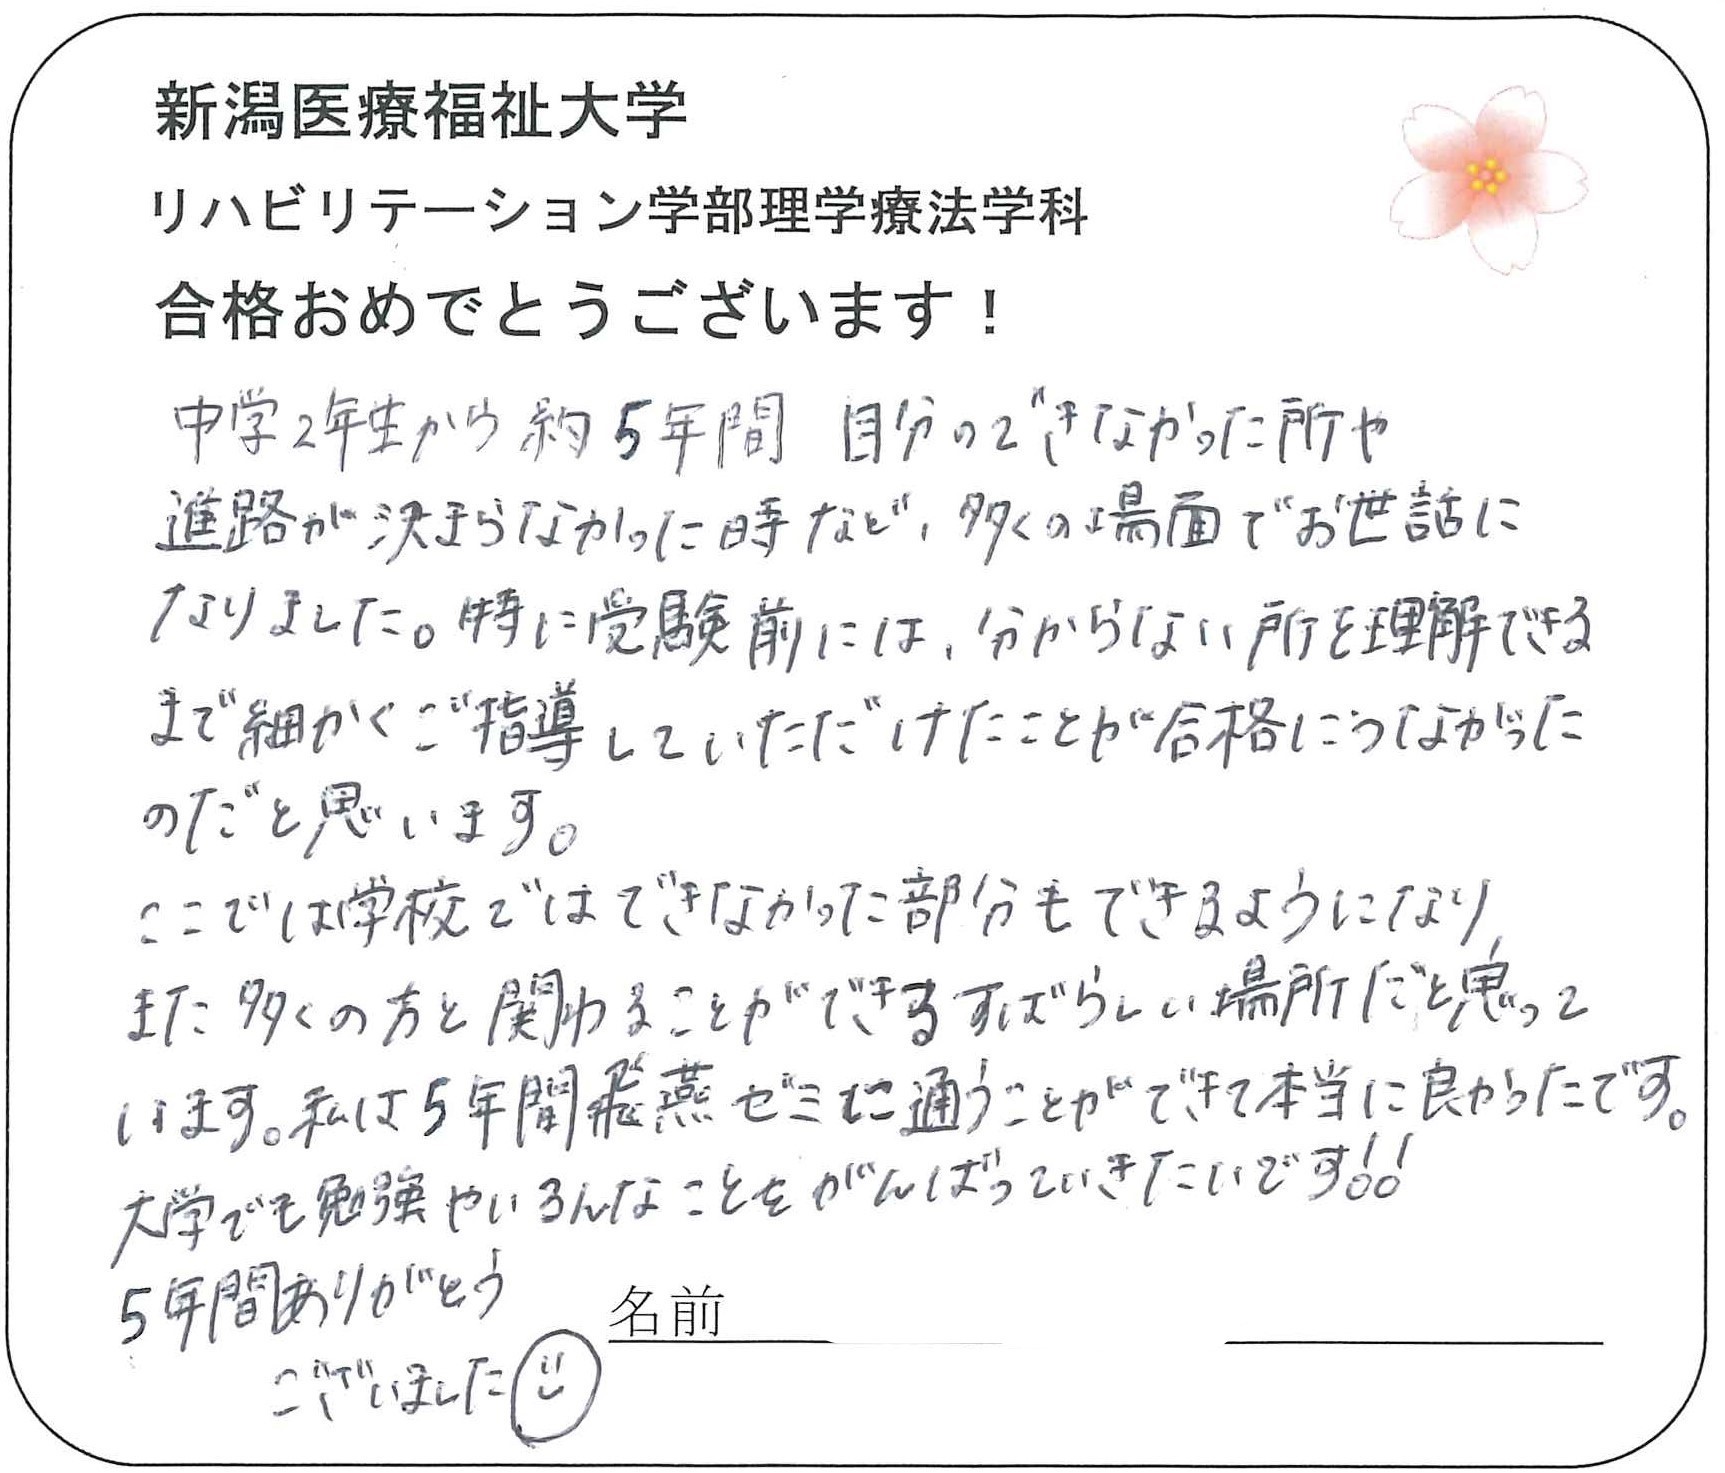 新潟医療福祉大学
リハビリテーション学部理学療法学科
合格おめでとうございます！
中学2年生から約5年間 自分のできなかった所や
進路が決まらなかった時など、多くの場面でお世話に
なりました。特に受験前には、分からない所を理解できる
まで細かくご指導していただけたことが合格につながった
のだと思います。
ここでは学校ではできなかった部分もできるようになり、
また多くの方と関わることができるすばらしい場所だと思って
います。私は5年間飛燕ゼミに通うことができて本当に良かったです。
大学でも勉強やいろんなことをがんばっていきたいです!!
5年間ありがとう
ございました
名前